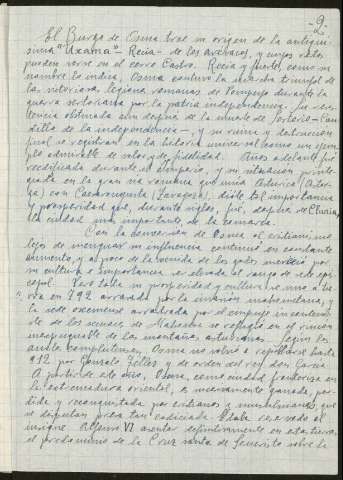 -2-
El Burgo de Osma trae su origen de la antiquí-
sima "Uxama" - Recia - de los arévacos, y cuyos restos
pueden verse en el cerro Castro. Recia y fuerte, como su
nombre lo indica, Osma contuvo la marcha triunfal de
las victoriosas legiones romanas de Pompeyo durante la
guerra sertoriana por la patria independencia. Su resis-
tencia obstinada aun después de la muerte de Sertorio - Cau-
dillo de la independencia -, y su ruina y destrucción
final se registran en la historia universal como un ejem-
plo admirable de valor y de fidelidad. Años adelante fue
reedificada durante el imperio, y su situación privile-
giada en la gran vía romana que unía Asturica (Astor-
ga) con Caesaraugusta (Zaragoza), dióle tal importancia
y prosperidad que, durante siglos, fue, después de Clunia,
la ciudad más importante de la comarca.
Con la conversión de Osma al cristianismo,
lejos de menguar su influencia continuó en constante
aumento, y al poco de la venida de los godos mereció por
su cultura e importancia ser elevada al rango de sede epis-
copal. Pero toda su prosperidad y cultura vino a tie-
rra en 792 arrasada por la invasión mahometana, y
la sede oxomense arrastrada por el empuje incontenib-
le de los secuaces de Mahoma se refugió en el rincón
inexpugnable de las montañas asturianas. Según los
anales complutenses, Osma no volvió a repoblarse hasta
912 por Gonzalo Téllez y de orden del rey don García.
A partir de este año, Osma, como ciudad fronteriza en
la extremadura oriental, es nuevamente ganada, per-
dida y reconquistada por cristianos y musulmanes, que
se disputan presa tan codiciada. Estaba reservado al
insigne Alfonso VI asentar definitivamente en esta tierra
el predominio de la Cruz santa de Jesucristo sobre la